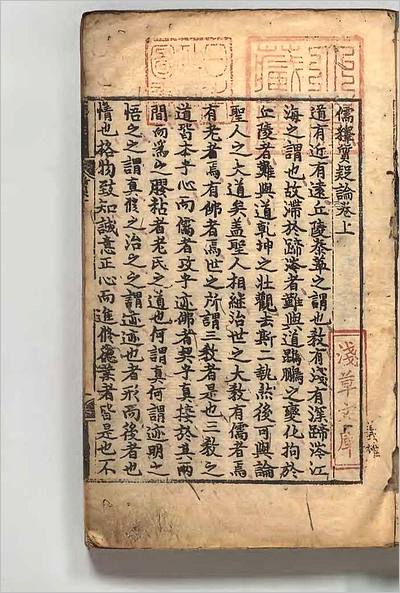 儒釋質疑論卷上
道有近有遠丘陵泰華之謂也教有淺有深蹄涔江
海之謂也故滯於蹄涔者難與道鵾鵬之變化拘於
丘陵者難與道乾坤之壯觀去斯二執然後可與論
聖人之大道矣盖聖人相継治世之大教有儒者焉
有老者焉有佛者焉世之所謂三教者是也三教之
道皆本乎心而儒者攻乎迹佛者契乎真接於其兩
間而爲之膠粘者老氏之道也何謂真何謂迹明之
悟之之謂真修之治之之謂迹迹也者形而後者也
情也格物致知誠意正心而進修德業者皆是也不
淺草文庫